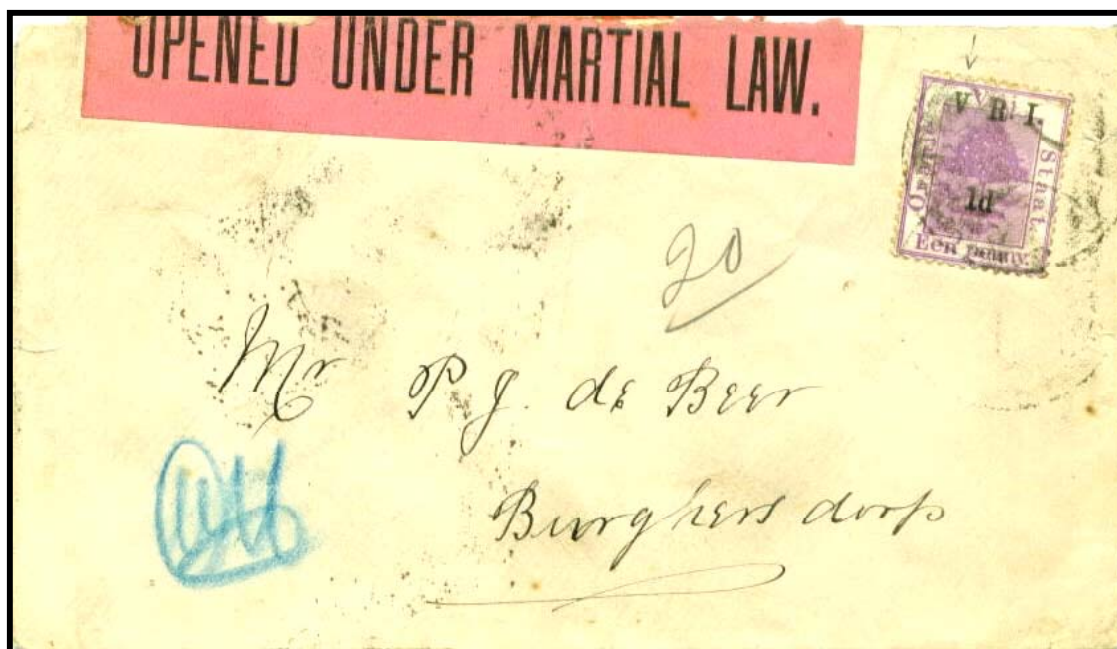 OPENED UNDER MARTIAL LAW.
V R I.
Staat
1d
Een penny.
20
Mr P. J. de Beer
Burghersdorp